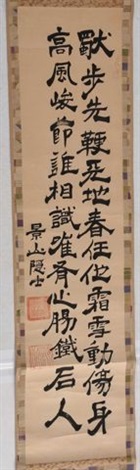 獨步先鞭至地春任他霜雪動傷身
高風峻節誰相識唯有心腸鐵石人
景山隱士